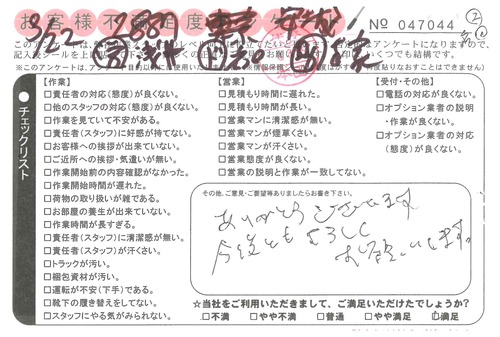 お客様不満足度
No 047044
【作業】
□責任者の対応(態度)が良くない。
□他のスタッフの対応(態度)が良くない。
□作業を見ていて不安がある。
□責任者(スタッフ)に好感が持てない。
□お客様への挨拶が出来ていない。
□ご近所への挨拶・気遣いが無い。
□作業開始前の内容確認がなかった。
□作業開始時間が遅れた。
□荷物の取り扱いが雑である。
□お部屋の養生が出来ていない。
□作業時間が長すぎる。
□責任者(スタッフ)に清潔感が無い。
□責任者(スタッフ)が汗くさい。
□トラックが汚い。
□梱包資材が汚い。
□運転が不安(下手)である。
□靴下の履き替えをしてない。
□スタッフにやる気がみられない。
チェックリスト
【営業】
□見積もり時間に遅れた。
□見積もり時間が長い。
□営業マンに清潔感が無い。
□営業マンが煙草くさい。
□営業マンが汗くさい。
□営業態度が良くない。
□営業の説明と作業が一致してない。
【受付・その他】
□電話の対応が良くない。
□オプション業者の説明
・作業が良くない。
□オプション業者の対応
(態度)が良くない。
その他、ご意見・ご要望等ありましたらお書き下さい。
ありがとうございます
今後ともよろしく
お願いします。
☆当社をご利用いただきまして、ご満足いただけたでしょうか?
□不満 □やや不満 □普通 □やや満足 □満足